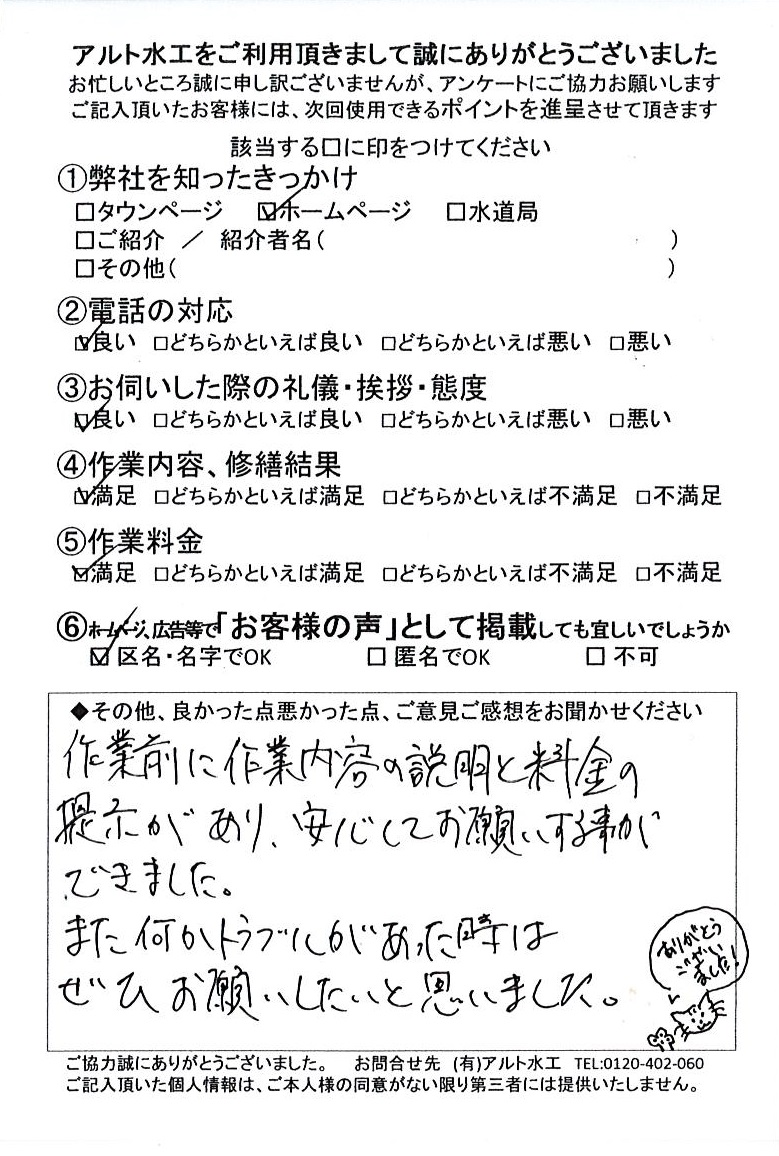 アルト水工をご利用頂きまして誠にありがとうございました
お忙しいところ誠に申し訳ございませんが、アンケートにご協力お願いします
ご記入頂いたお客様には、次回使用できるポイントを進呈させて頂きます
該当する口に印をつけてください
①弊社を知ったきっかけ
□タウンページ ☑ホームページ □水道局
□ご紹介 / 紹介者名( )
□その他( )
②電話の対応
☑良い □どちらかといえば良い □どちらかといえば悪い □悪い
③お伺いした際の礼儀・挨拶・態度
☑良い □どちらかといえば良い □どちらかといえば悪い □悪い
④作業内容、修繕結果
☑満足 □どちらかといえば満足 □どちらかといえば不満足 □不満足
⑤作業料金
☑満足 □どちらかといえば満足 □どちらかといえば不満足 □不満足
⑥ホームページ、広告等で「お客様の声」として掲載しても宜しいでしょうか
☑ 区名・名字でOK □ 匿名でOK □ 不可
◆その他、良かった点悪かった点、ご意見ご感想をお聞かせください
作業前に作業内容の説明と料金の
提示があり、安心してお願いする事が
できました。
また何かトラブルがあった時は
ぜひお願いしたいと思いました。
ありがとう
ござい
ました!
ご協力誠にありがとうございました。 お問合せ先 (有)アルト水工 TEL:0120-402-060
ご記入頂いた個人情報は、ご本人様の同意がない限り第三者には提供いたしません。